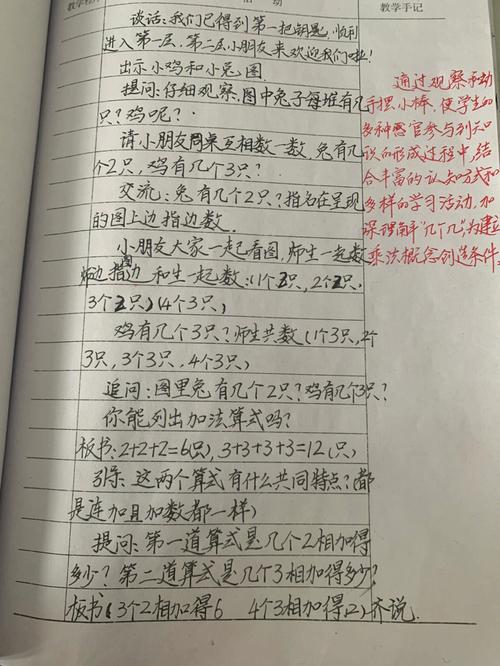 教学
动
教学手记
谈话:我们已得到第一把钥匙,顺利
进入第一层,第二层小朋友来欢迎我们啦!
出示小鸡和小兔图.
提问:仔细观察,图中兔子每堆有几
只?鸡呢?
请小朋友同桌互相数一数,兔有几
个2只,鸡有几个3只?
交流:兔有几个2只?指名在呈现
的图上边指边数.
小朋友大家一起看图,师生一起数
师边指图边和生一起数:(1个2只,2个2只,
3个2只)(4个3只)
鸡有几个3只?师生共数(1个3只,2个
3只,3个3只,4个3只)
追问:图里兔有几个2只?鸡有几个3只?
你能列出加法算式吗?
板书:2+2+2=6(只),3+3+3+3=12(只)
引导:这两个算式有什么共同特点?(都
是连加且加数都一样)
提问:第一道算式是几个2相加得
多少?第二道算式是几个3相加得多少?
板书(3个2相加得6 4个3相加得12)齐说.
通过观察和动
手摆小棒,使学生的
多种感官参与到知
识的形成过程中,结
合丰富的认知方式和
多样的学习活动,加
深理解"几个几",为建立
乘法概念创造条件.